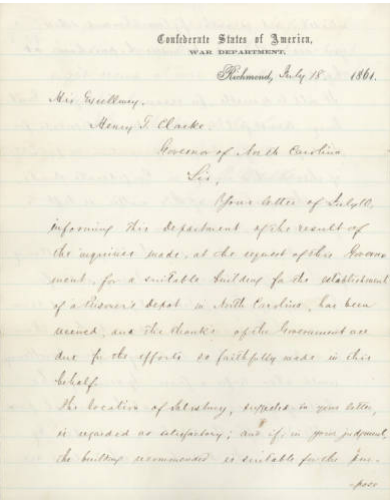 Confederate States of America,
WAR DEPARTMENT.
Richmond, July 18 1861.
His Excellency,
Henry T. Clarke
Governor of North Carolina
Sir,
Your letter of July 10,
informing this Department of the result of
the inquiries made, at the request of this Govern
ment, for a suitable building for the establishment
of a Prisoner's depot in North Carolina, has been
received, and the thanks of the Government are
due for the efforts so faithfully made in this
behalf.
The location of Salisbury, suggested in your letter,
is regarded as satisfactory; and if, in your judgment,
the building recommended is suitable for the pur-
-pose